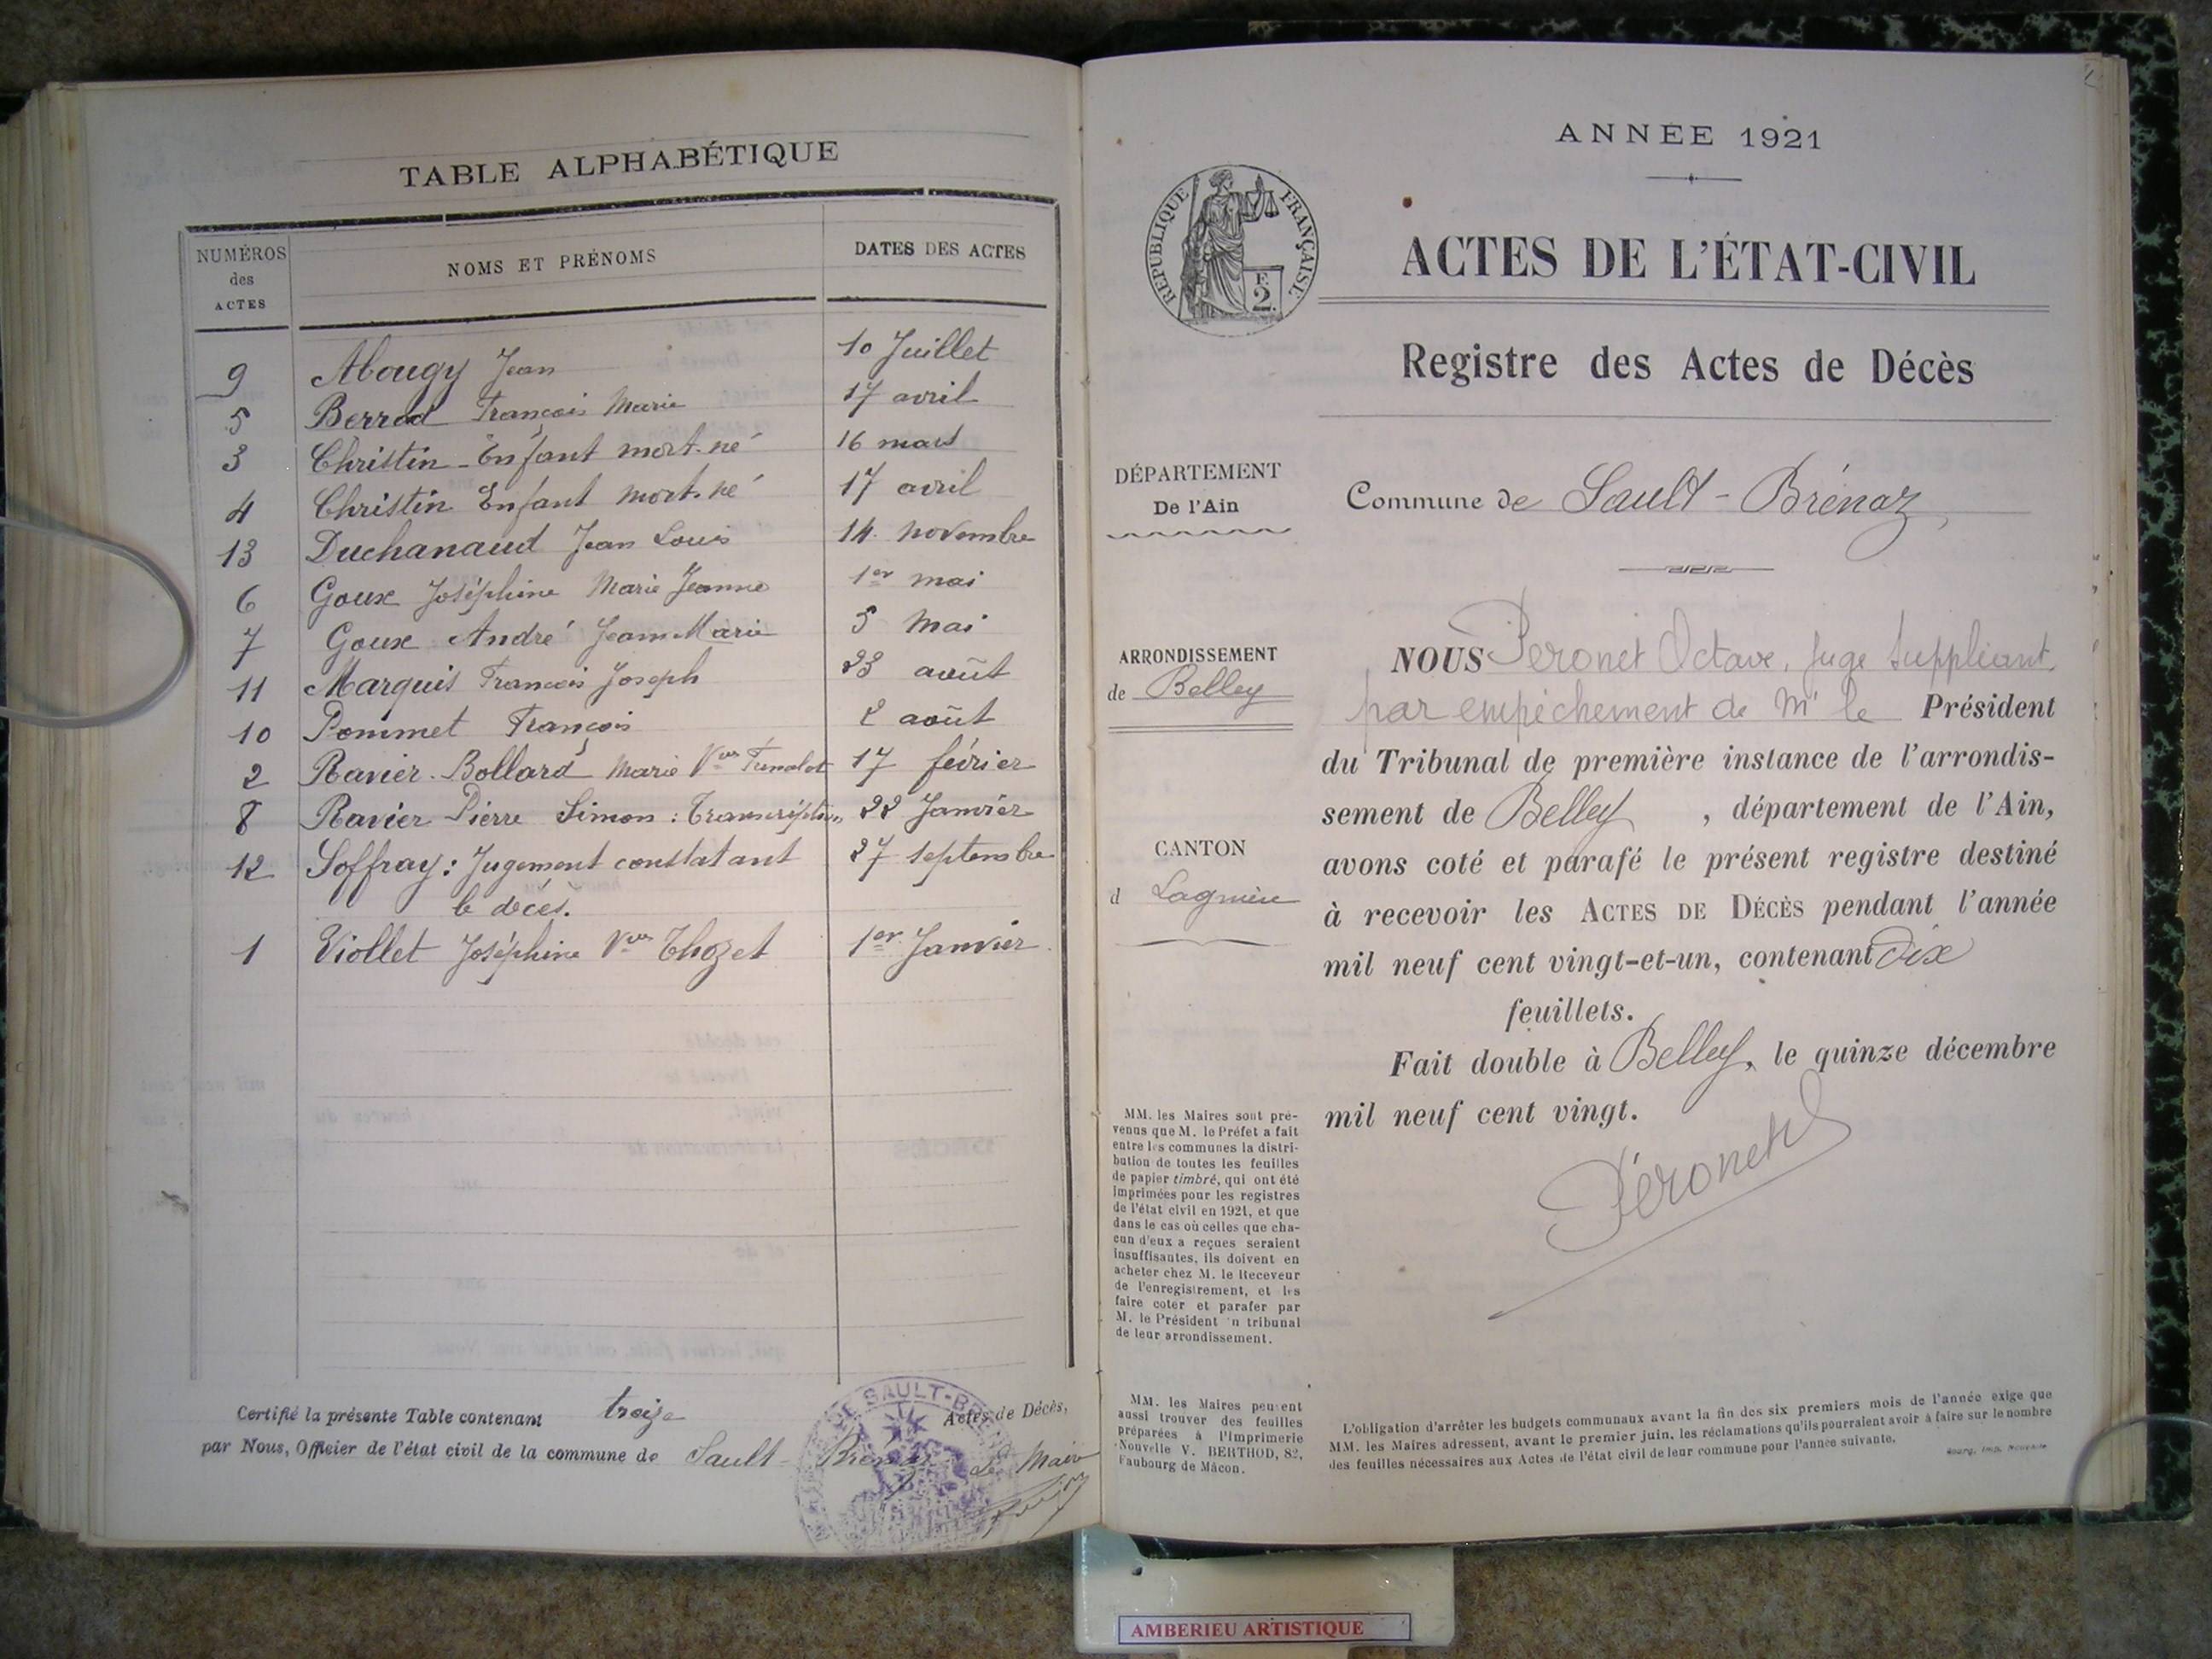 TABLE ALPHABÉTIQUE
NUMÉROS des ACTES NOMS ET PRÉNOMS DATES DES ACTES
9 Abougy Jean 10 Juillet
5 Berrod François Marie 17 avril
3 Christin - Enfant mort-né 16 mars
4 Christin Enfant mort-né 17 avril
13 Duchanaud Jean Louis 14 novembre
6 Goux Joséphine Marie Jeanne 1er mai
7 Goux André Jean Marie 5 Mai
11 Marquis François Joseph 23 août
10 Pommet François 2 août
2 Ravier-Bollard Marie Vve 17 février
8 Ravier Pierre Simon : Transcription 22 Janvier
12 Soffray : Jugement constatant 27 septembre
le décès.
1 Viollet Joséphine Vve Thozet 1er Janvier
Certifié la présente Table contenant treize Actes de Décès,
par Nous, Officier de l'état civil de la commune de Sault-Brénaz Le Maire
SAULT-BR
ANNÉE 1921
RÉPUBLIQUE FRANÇAISE
F.
2.
ACTES DE L'ÉTAT-CIVIL
Registre des Actes de Décès
DÉPARTEMENT
De l'Ain
Commune de Sault-Brénaz,
ARRONDISSEMENT
de Belley
CANTON
d Lagnieu
NOUS Peronet Octave, juge suppléant,
par empêchement de Mr le Président
du Tribunal de première instance de l'arrondis-
sement de Belley , département de l'Ain,
avons coté et parafé le présent registre destiné
à recevoir les ACTES DE DÉCÈS pendant l'année
mil neuf cent vingt-et-un, contenant dix
feuillets.
Fait double à Belley, le quinze décembre
mil neuf cent vingt.
Péronet
MM. les Maires sont pré-
venus que M. le Préfet a fait
entre les communes la distri-
bution de toutes les feuilles
de papier timbré, qui ont été
imprimées pour les registres
de l'état civil en 1921, et que
dans le cas où celles que cha-
cun d'eux a reçues seraient
insuffisantes, ils doivent en
acheter chez M. le Receveur
de l'enregistrement, et les
faire coter et parafer par
M. le Président 'u tribunal
de leur arrondissement.
MM. les Maires peuvent
aussi trouver des feuilles
préparées à l'Imprimerie
Nouvelle V. BERTHOD, 82,
Faubourg de Mâcon.
L'obligation d'arrêter les budgets communaux avant la fin des six premiers mois de l'année exige que
MM. les Maires adressent, avant le premier juin, les réclamations qu'ils pourraient avoir à faire sur le nombre
des feuilles nécessaires aux Actes de l'état civil de leur commune pour l'année suivante.
Bourg, Imp. Nouvelle
AMBERIEU ARTISTIQUE